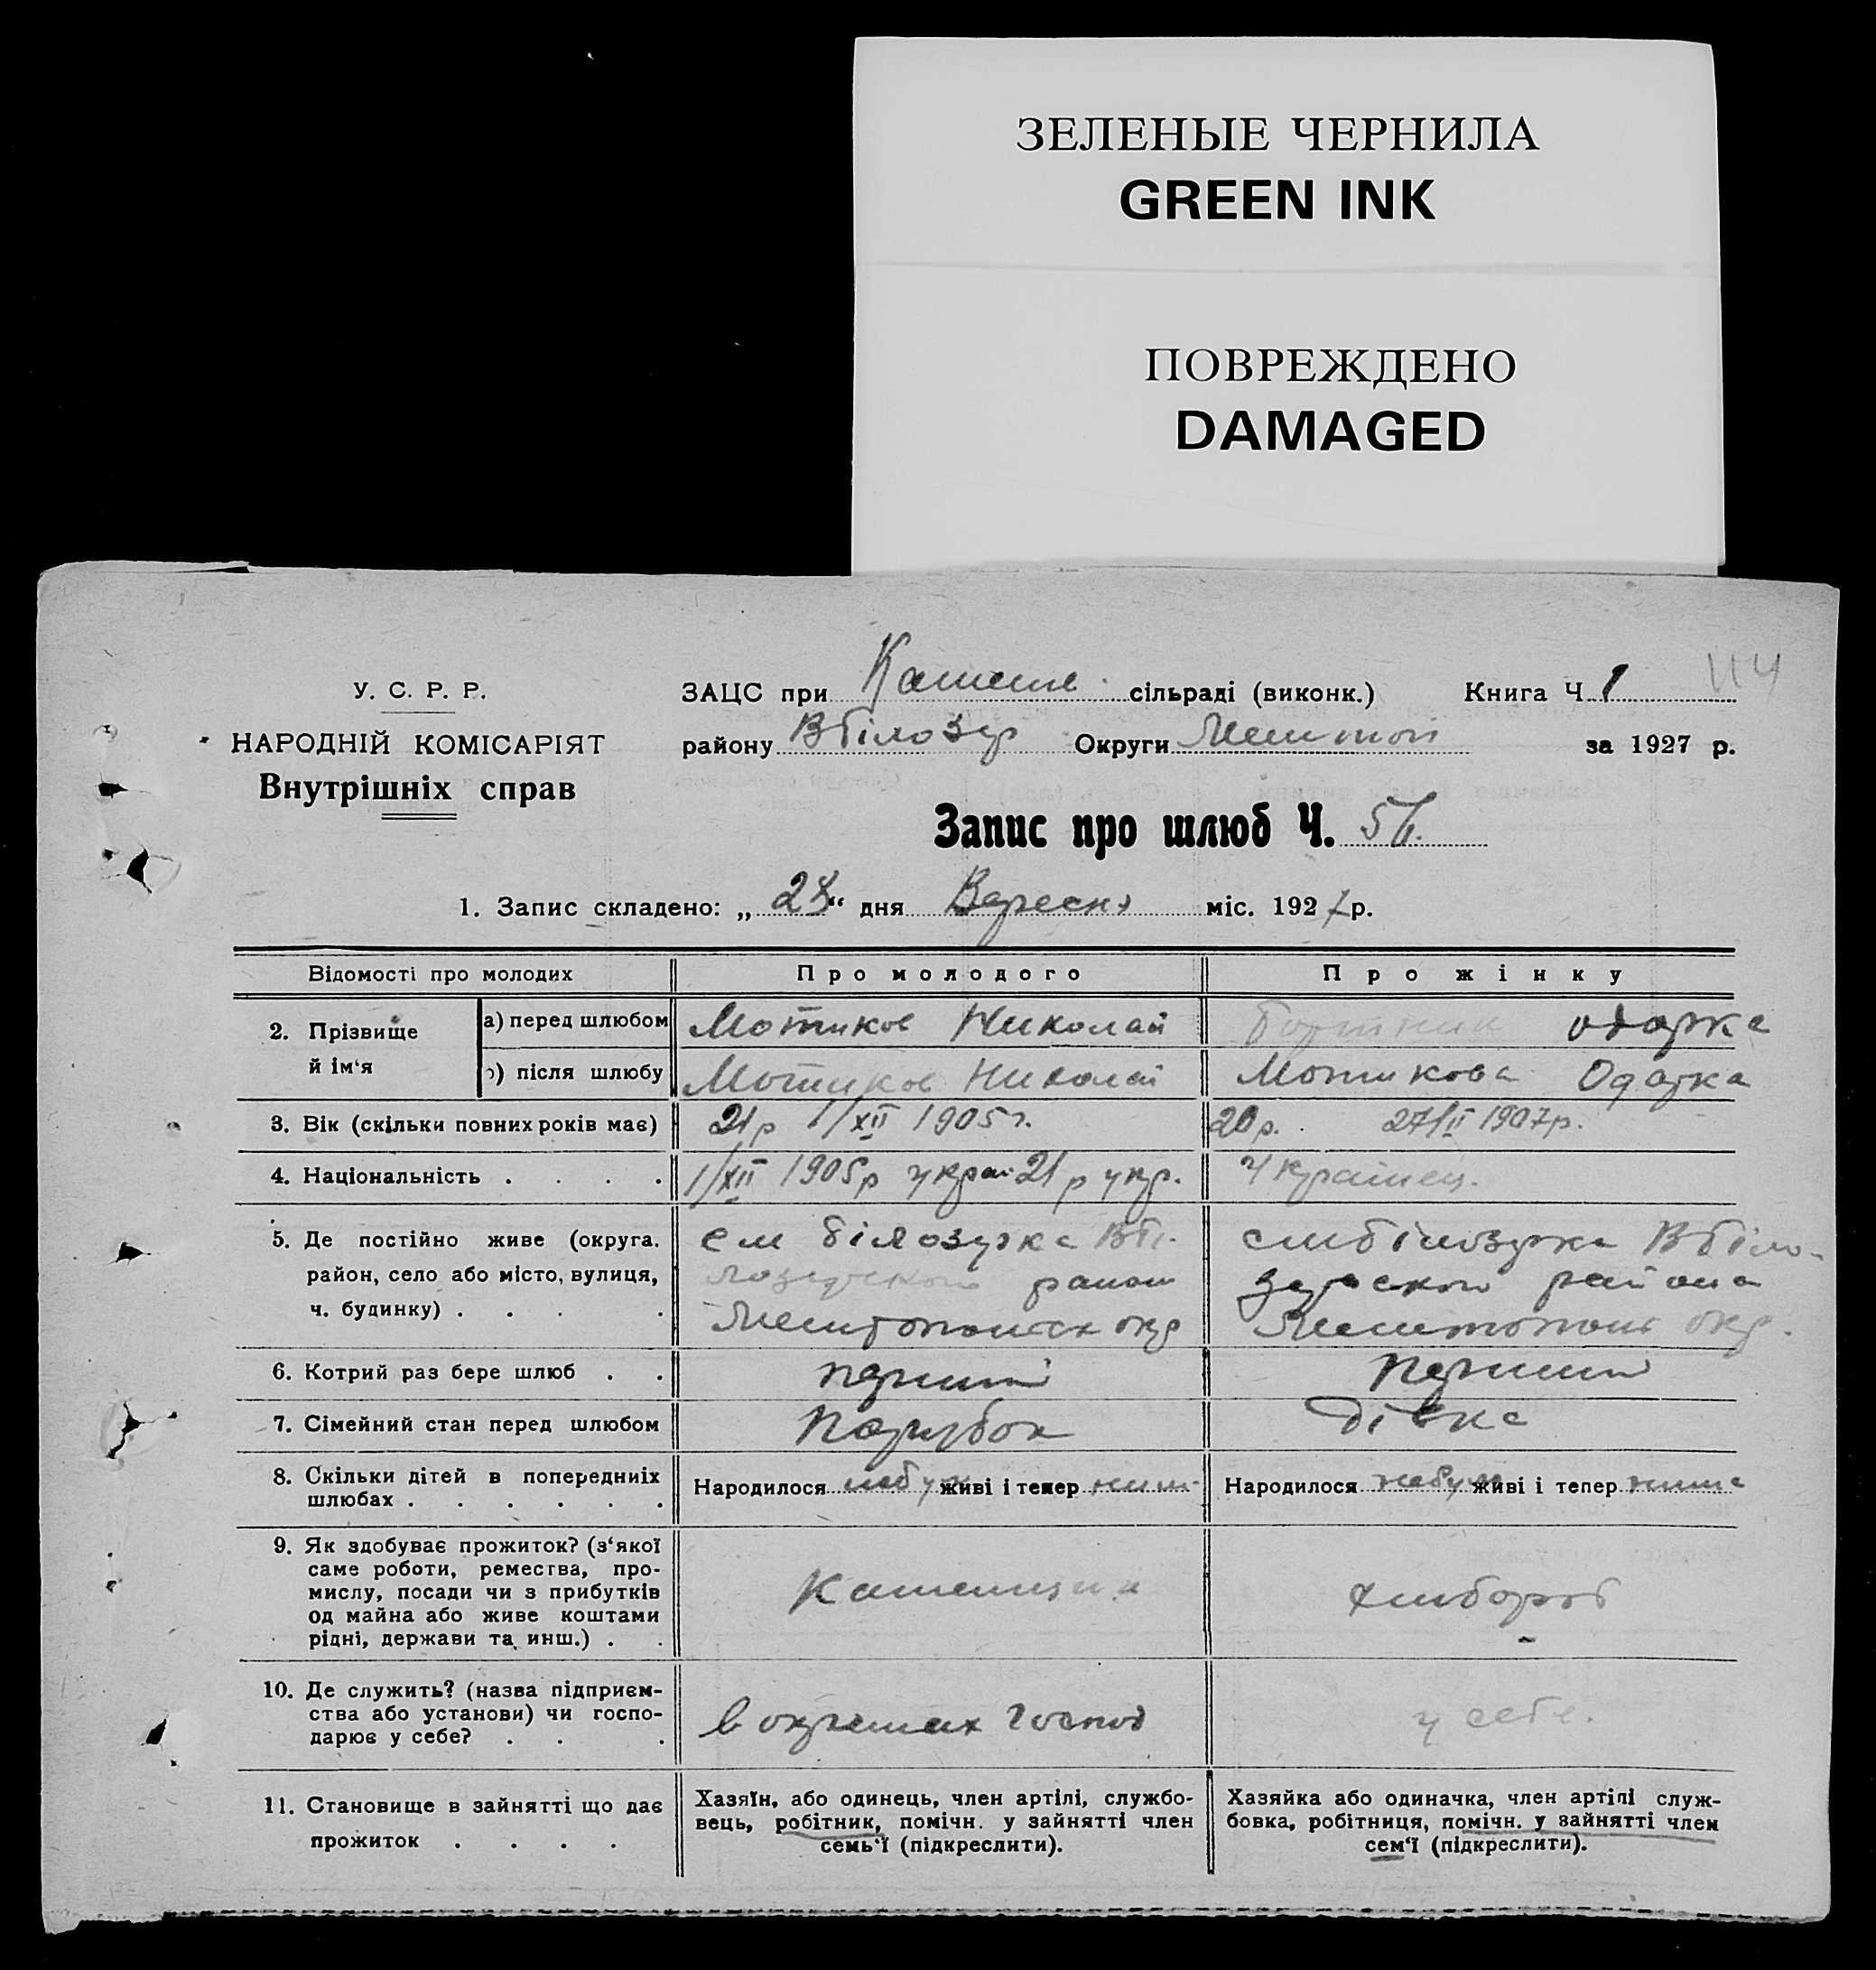 ЗЕЛЕНЫЕ ЧЕРНИЛА
GREEN INK
ПОВРЕЖДЕНО
DAMAGED
114
У. С. Р. Р.
НАРОДНІЙ КОМІСАРІЯТ
Внутрішніх справ
ЗАЦС при сільраді (виконк.) Книга Ч 1
району В Білозер Округи Мелитоп за 1927 р.
Запис про шлюб Ч.
1. Запис складено: „28“ дня Вересня міс. 1927 р.
Відомості про молодих Про молодого Про жінку
2. Прізвище й ім‘я
а) перед шлюбом Мотиков Николай Одарка
б) після шлюбу Мотиков Николай Мотикова Одарка
3. Вік (скільки повних років має) 21 р 1/XII 1905 г. 20 р. 27/II 1907 р.
4. Національність . . . . 1/XII 1905 р укр 21 р укр. Українец.
5. Де постійно живе (округа, район, село або місто, вулиця, ч. будинку) . . . .
см білозерка В Бі-
лозерского район
Мелитопольск окр
см білозерка В біло-
зерского района
Мелитополь окр.
6. Котрий раз бере шлюб . . перший перший
7. Сімейний стан перед шлюбом Парубок дівка
8. Скільки дітей в попередниіх шлюбах . . . . . .
Народилося небул живі і тепер нима
Народилося небул живі і тепер нима
9. Як здобуває прожиток? (з‘якої
саме роботи, ремества, про-
мислу, посади чи з прибутків
од майна або живе коштами
рідні, держави та инш.) . .
хлібороб
10. Де служить? (назва підприєм-
ства або установи) чи госпо-
дарює у себе? . . .
в окремых господ
у себе.
11. Становище в зайнятті що дає
прожиток . . . .
Хазяїн, або одинець, член артілі, службо-
вець, робітник, помічн. у зайнятті член
семь‘ї (підкреслити).
Хазяйка або одиначка, член артілі служ-
бовка, робітниця, помічн. у зайнятті член
сем‘ї (підкреслити).